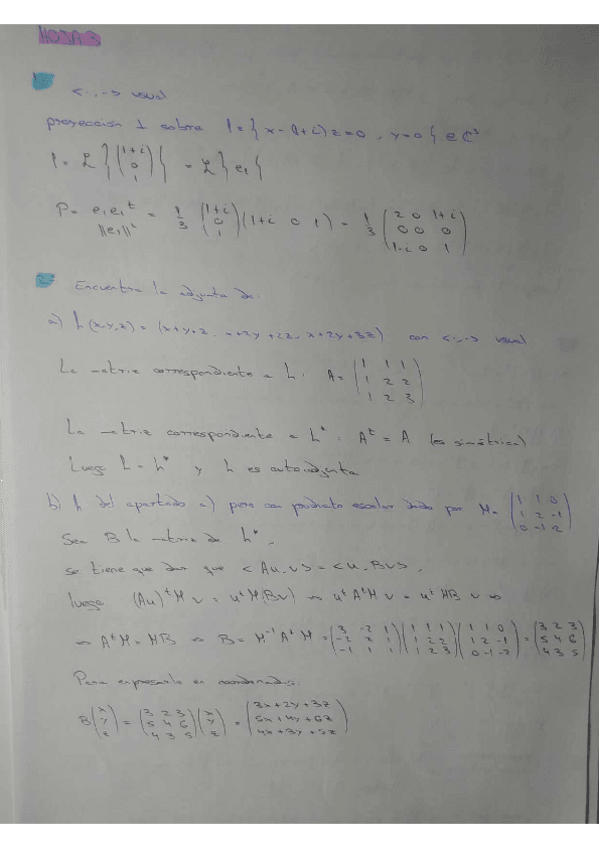 HOJA 3
1
<·,·> usual
proyección ⊥ sobre l = { x - (1+i) z = 0 , y = 0 } ∈ ℂ³
l = L { (1+i 0 1) } = L { e₁ }
P = e₁e₁ᵗ / ||e₁||² = 1/3 (1+i 0 1) (1+i 0 1) = 1/3 (2 0 1+i / 0 0 0 / 1-i 0 1)
2
Encuentra la adjunta de:
a) h(x,y,z) = (x+y+z, x+2y+2z, x+2y+3z) con <·,·> usual
La matriz correspondiente a h: A = (1 1 1 / 1 2 2 / 1 2 3)
La matriz correspondiente a h* : Aᵗ = A (es simétrica)
Luego h = h* y h es autoadjunta
b) h del apartado a) pero con producto escalar dado por M = (1 1 0 / 1 2 -1 / 0 -1 2)
Sea B la matriz de h*,
se tiene que dar que <Au,v> = <u,Bv>,
luego (Au)ᵗ M v = uᵗ M (Bv) ⇒ uᵗ Aᵗ M v = uᵗ M B v ⇒
⇒ AᵗM = MB ⇒ B = M⁻¹ Aᵗ M = (3 -2 1 / -2 2 1 / -1 1 1) (1 1 1 / 1 2 2 / 1 2 3) (1 1 0 / 1 2 -1 / 0 -1 2) = (3 2 3 / 5 4 6 / 4 3 5)
Para expresarlo en coordenadas:
B (x y z) = (3 2 3 / 5 4 6 / 4 3 5) (x y z) = (3x+2y+3z / 5x+4y+6z / 4x+3y+5z)